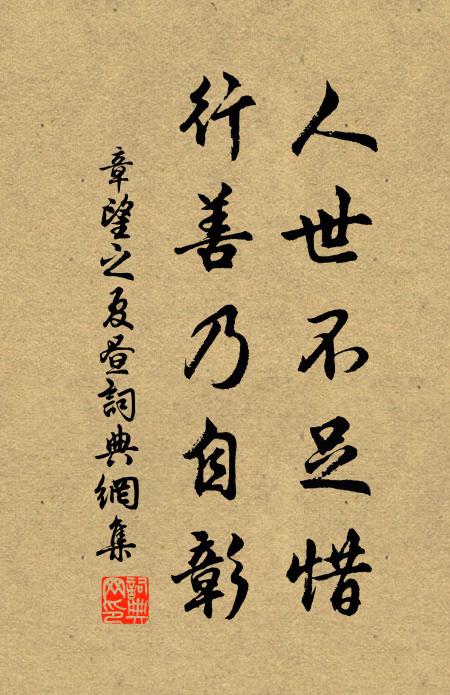 人世不足惜
行善乃自彰
章望之夏晝詞典網集
詞典網印